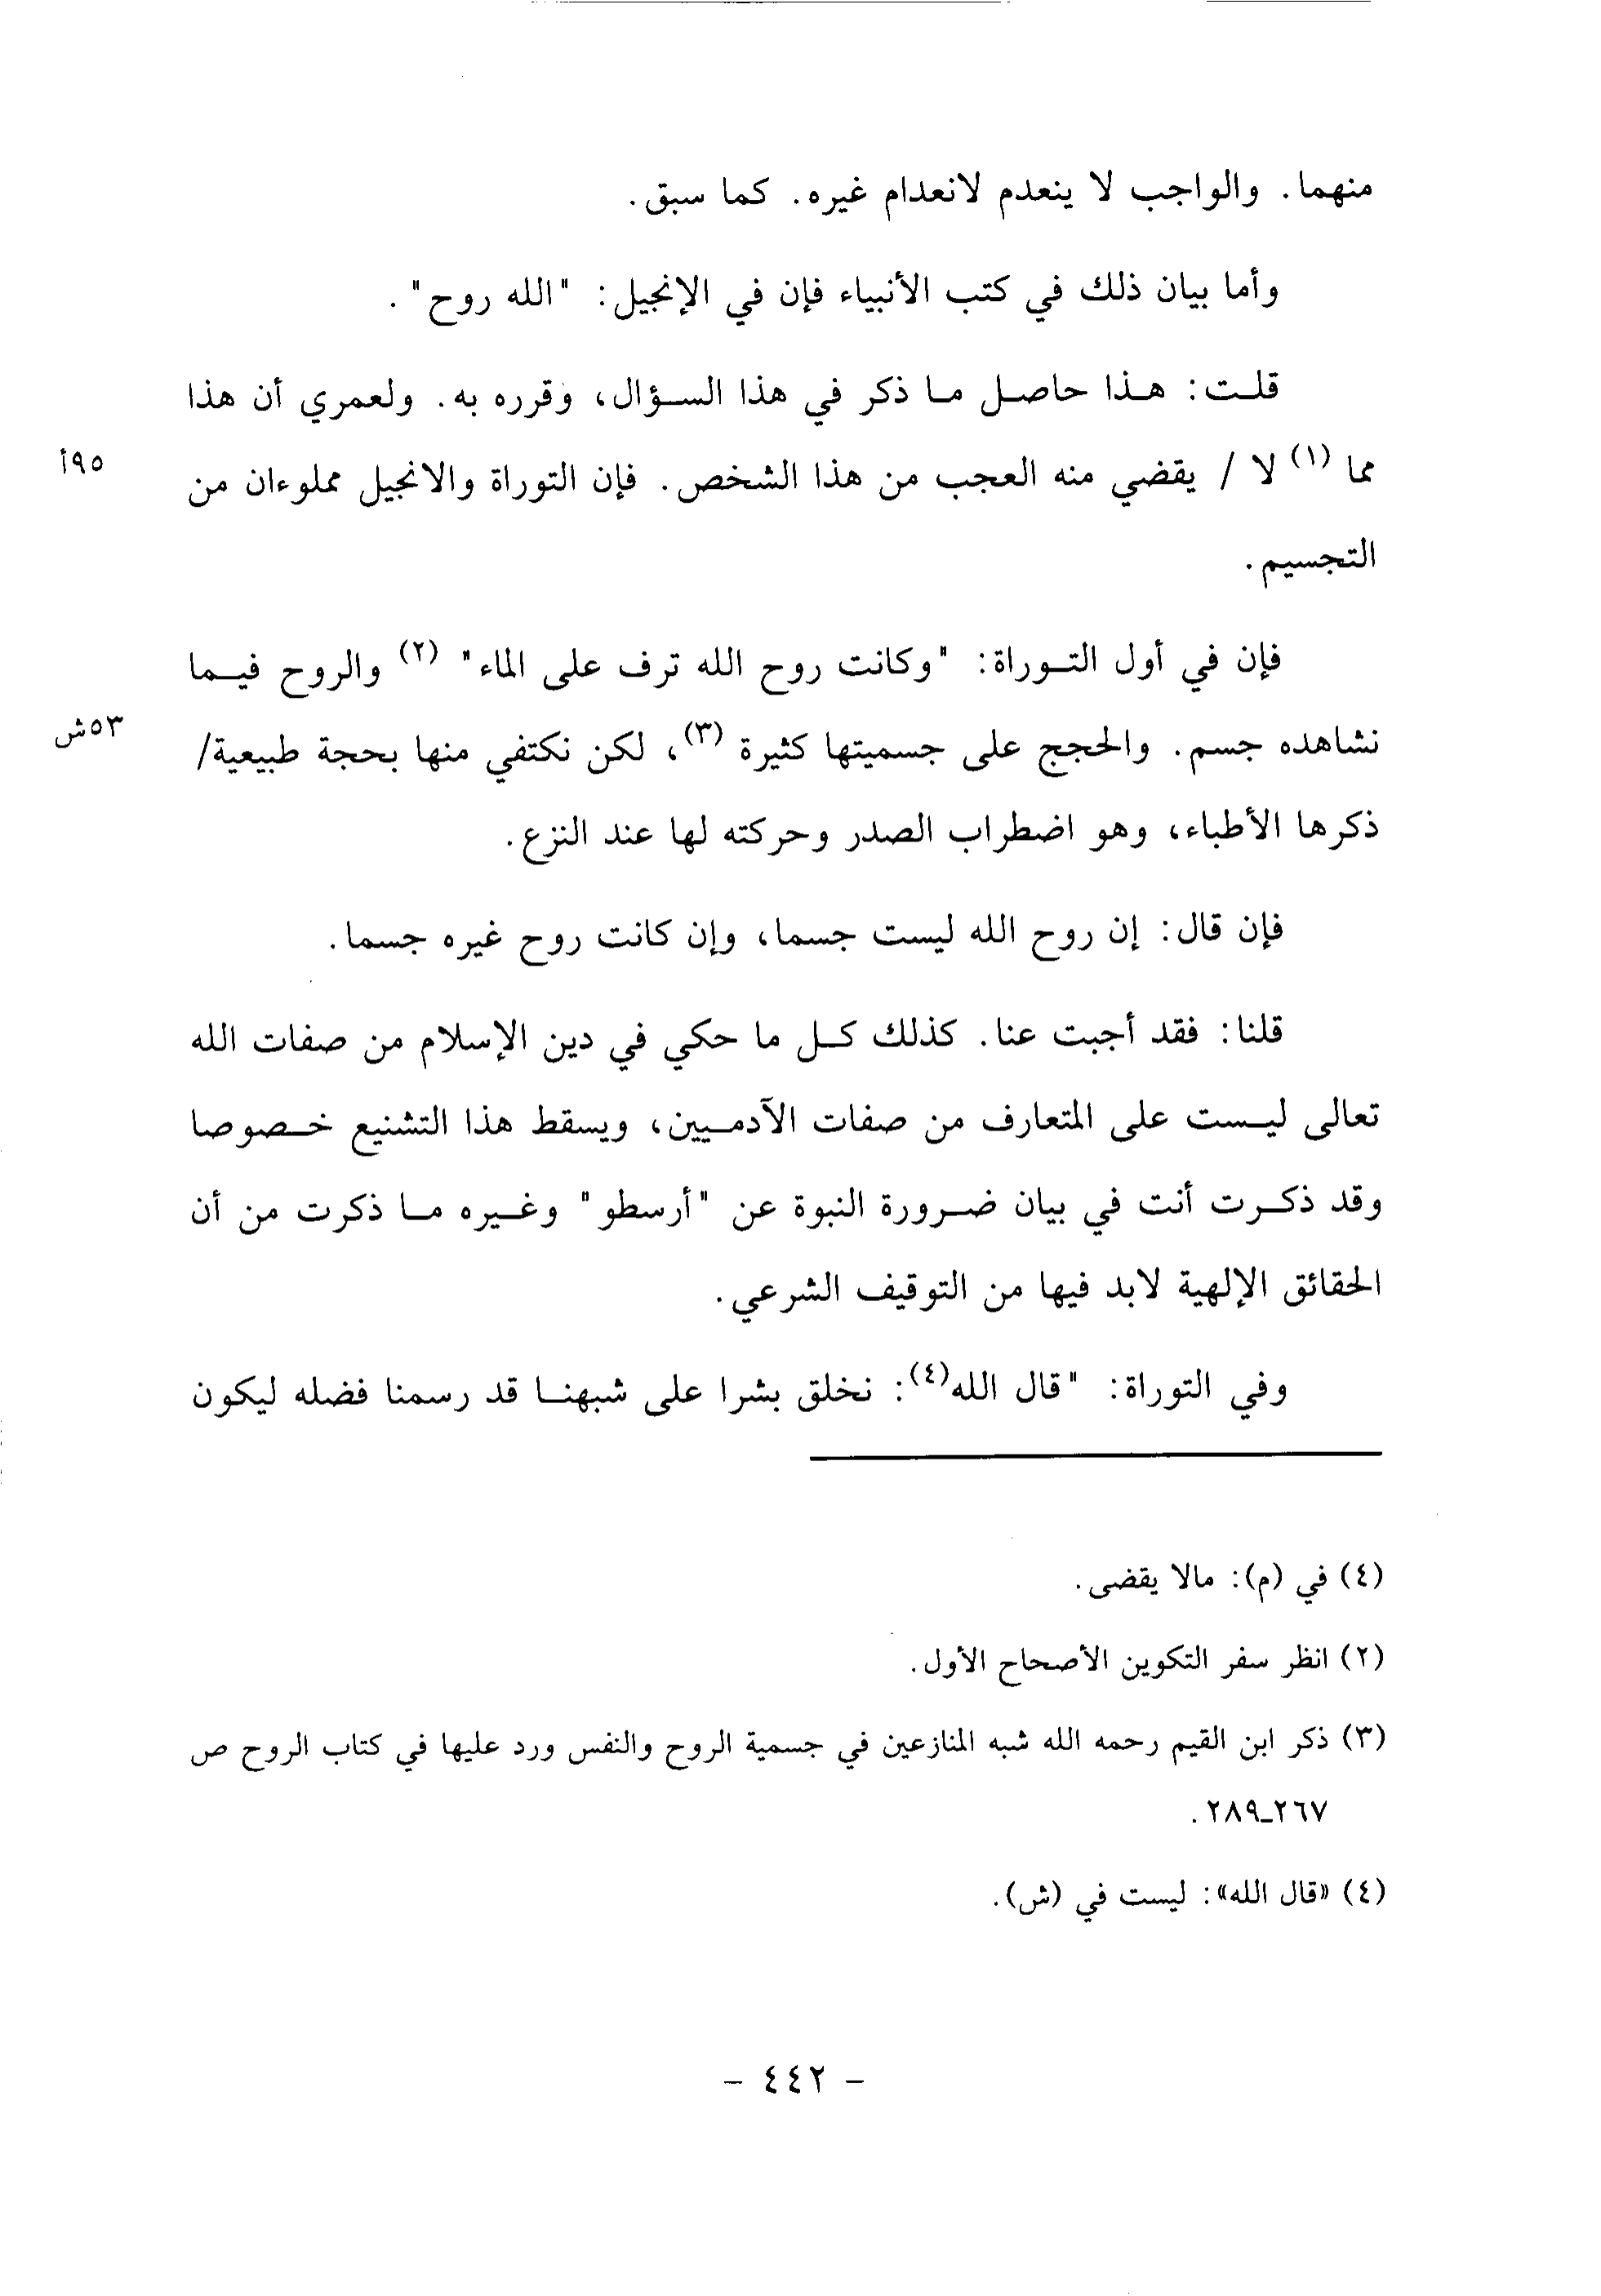 منهما. والواجب لا ينعدم لانعدام غيره. كما سبق.
وأما بيان ذلك في كتب الأنبياء فإن في الإنجيل: "الله روح".
قلت: هذا حاصل ما ذكر في هذا السؤال، وقرره به. ولعمري أن هذا
مما (١) لا / يقضي منه العجب من هذا الشخص. فإن التوراة والانجيل مملوءان من
٥٩أ
التجسيم.
فإن في أول التوراة: "وكانت روح الله ترف على الماء" (٢) والروح فيما
نشاهده جسم. والحجج على جسميتها كثيرة (٣)، لكن نكتفي منها بحجة طبيعية/
٥٣ش
ذكرها الأطباء، وهو اضطراب الصدر وحركته لها عند النزع.
فإن قال: إن روح الله ليست جسما، وإن كانت روح غيره جسما.
قلنا: فقد أجبت عنا. كذلك كل ما حكي في دين الإسلام من صفات الله
تعالى ليست على المتعارف من صفات الآدميين، ويسقط هذا التشنيع خصوصا
وقد ذكرت أنت في بيان ضرورة النبوة عن "أرسطو" وغيره ما ذكرت من أن
الحقائق الإلهية لابد فيها من التوقيف الشرعي.
وفي التوراة: "قال الله(٤): نخلق بشرا على شبهنا قد رسمنا فضله ليكون
(٤) في (م): مالا يقضى.
(٢) انظر سفر التكوين الأصحاح الأول.
(٣) ذكر ابن القيم رحمه الله شبه المنازعين في جسمية الروح والنفس ورد عليها في كتاب الروح ص
٢٦٧ـ٢٨٩.
(٤) «قال الله»: ليست في (ش).
- ٤٤٢ -